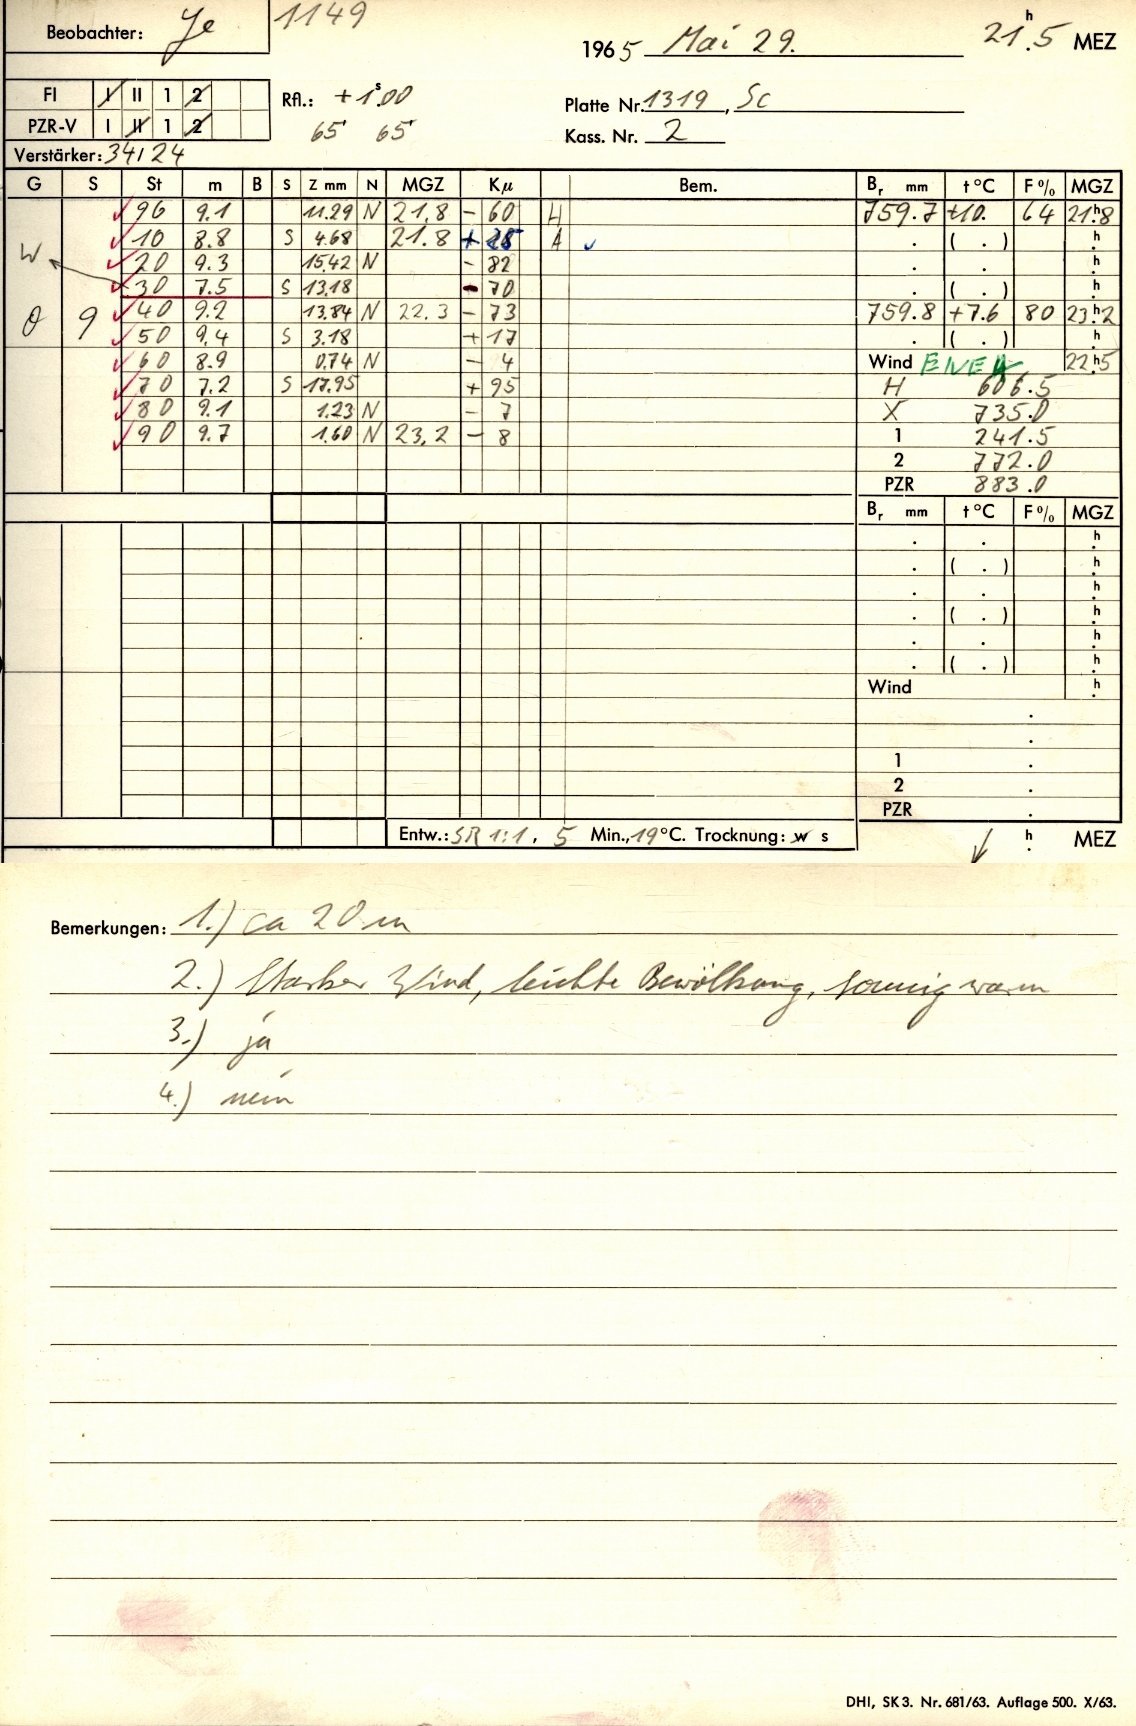 Beobachter: Je 1149
1965 Mai 29. 21h.5 MEZ
FI I II 1 2 Rfl.: +1s.00 Platte Nr. 1319, Sc
PZR-V I II 1 2 65 65 Kass. Nr. 2
Verstärker: 34/24
G S St m B S Z mm N MGZ Kμ Bem. Br mm t °C F % MGZ
96 9.1 11.29 N 21.8 - 60 H 759.7 +10. 64 21h.8
10 8.8 S 4.68 21.8 + A . ( . ) h.
W 20 9.3 15.42 N - 82 . . h.
30 7.5 S 13.18 - 70 . ( . ) h.
θ 9 40 9.2 13.84 N 22.3 - 73 759.8 +7.6 80 23h.2
50 9.4 S 3.18 + 17 . ( . ) h.
60 8.9 0.74 N - 4 Wind 22h.5
70 7.2 S 17.95 + 95 H 606.5
80 9.1 1.23 N - 7 X 735.0
90 9.7 1.60 N 23.2 - 8 1 241.5
2 772.0
PZR 883.0
Br mm t °C F % MGZ
. . h.
. ( . ) h.
. . h.
. ( . ) h.
. . h.
. ( . ) h.
Wind h.
.
.
1 .
2 .
PZR .
Entw.: SR 1:1, 5 Min., 19 °C. Trocknung: w s h. MEZ
Bemerkungen: 1.) ca 20 m
2.) Starker Wind, leichte Bewölkung, sonnig warm
3.) ja
4.) nein
DHI, SK 3. Nr. 681/63. Auflage 500. X/63.